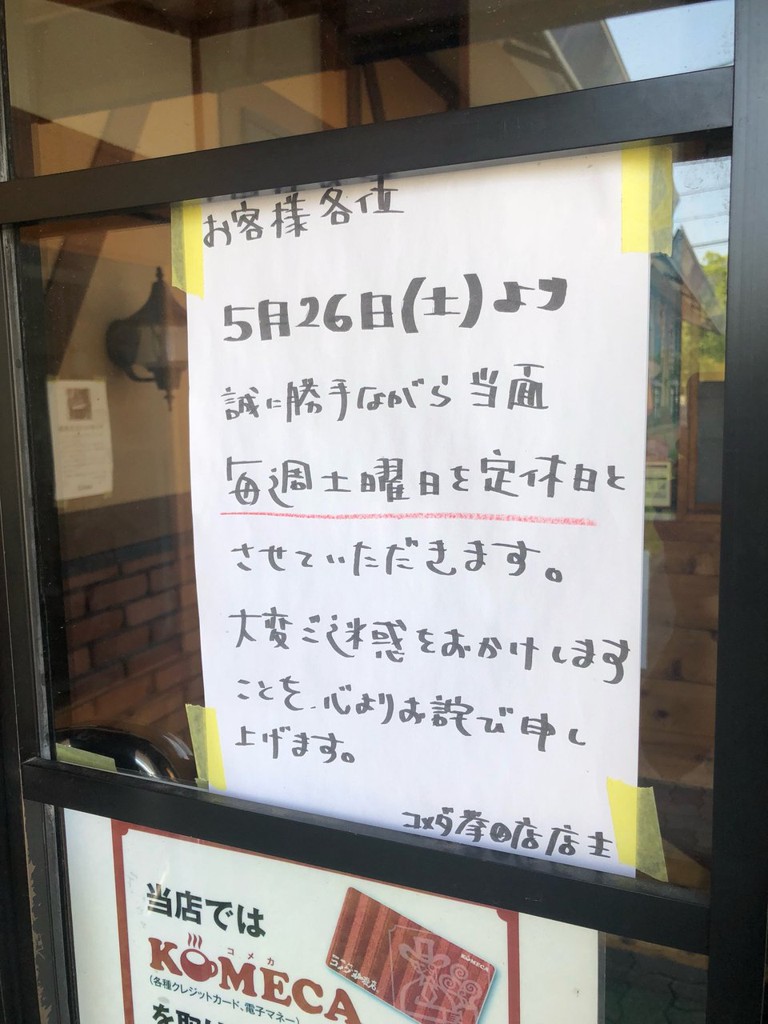 お客様各位
5月26日(土)より
誠に勝手ながら当面
毎週土曜日を定休日と
させていただきます。
大変ご迷惑をおかけします
ことを、心よりお詫び申し
上げます。
コメダ 店店主
当店では
コメカ
KOMECA
(各種クレジットカード、電子マネー)
KOMECA
を取